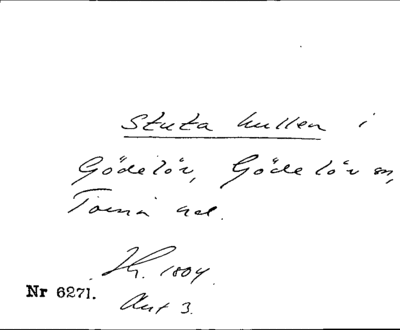 Stuta kullen i
Gödelöv, Gödelöv sn,
Torna hd.
Sk. 1804.
Nr 6271.
Akt 3.